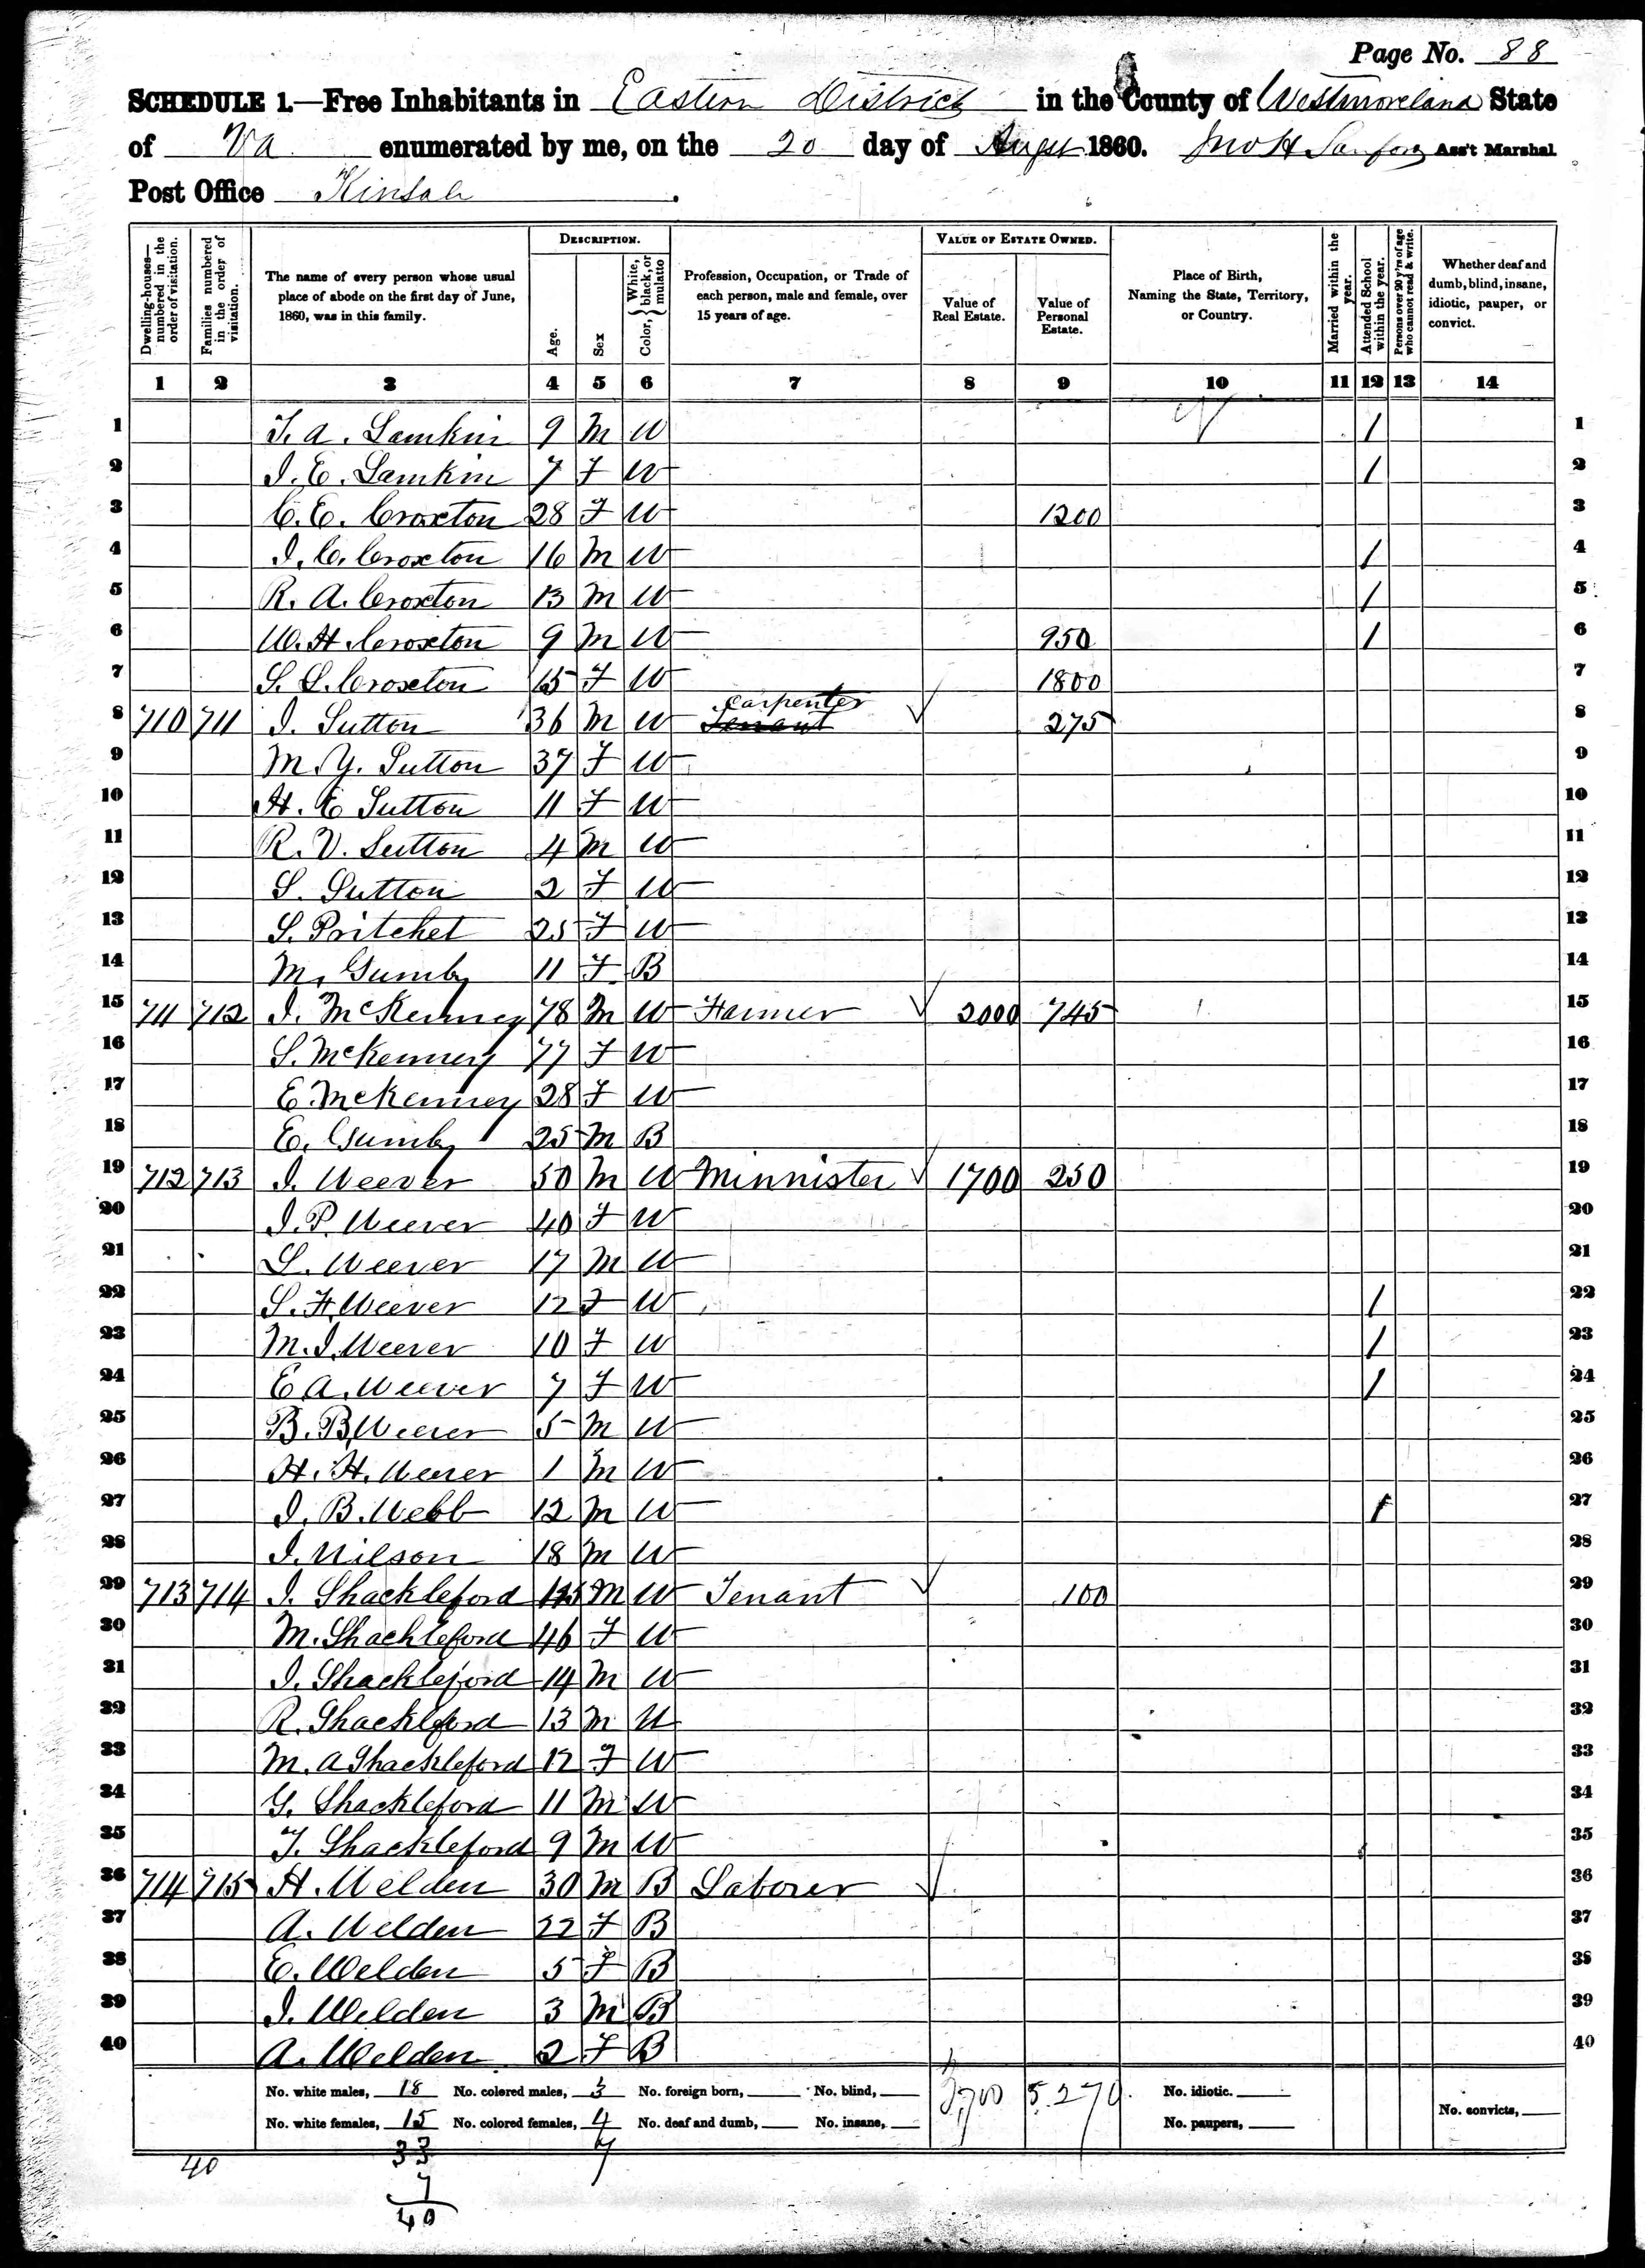 Page No. 88
SCHEDULE 1.—Free Inhabitants in Eastern District in the County of Westmoreland State
of Va enumerated by me, on the 20 day of August 1860. Jno H Sanford Ass't Marshal
Post Office Kinsale
Dwelling-houses—numbered in the order of visitation.
Families numbered in the order of visitation.
The name of every person whose usual place of abode on the first day of June, 1860, was in this family.
DESCRIPTION.
Age.
Sex
Color, { White, black, or mulatto
Profession, Occupation, or Trade of each person, male and female, over 15 years of age.
VALUE OF ESTATE OWNED.
Value of Real Estate.
Value of Personal Estate.
Place of Birth, Naming the State, Territory, or Country.
Married within the year.
Attended School within the year.
Persons over 20 y'rs of age who cannot read & write.
Whether deaf and dumb, blind, insane, idiotic, pauper, or convict.
1 2 3 4 5 6 7 8 9 10 11 12 13 14
1 T. A. Lamkin 9 M W / 1
2 I. E. Lamkin 7 F W / 2
3 C. E. Croxton 28 F W 1200 3
4 I. C. Croxton 16 M W / 4
5 R. A. Croxton 13 M W / 5
6 W. H. Croxton 9 M W 950 / 6
7 S. L. Croxton 15 F W 1800 7
8 710 711 I. Sutton 36 M W Tenant carpenter ✓ 275 8
9 M. Y. Sutton 37 F W 9
10 H. E Sutton 11 F W 10
11 R. V. Sutton 4 M W 11
12 S. Sutton 2 F W 12
13 S. Pritchet 25 F W 13
14 M. Gumby 11 F B 14
15 711 712 I. McKenney 78 M W Farmer ✓ 2000 745 15
16 S. McKenney 77 F W 16
17 E. McKenney 28 F W 17
18 E. Gumby 25 M B 18
19 712 713 I. Weever 50 M W Minnister ✓ 1700 250 19
20 I. P. Weever 40 F W 20
21 L. Weever 17 M W 21
22 S. F. Weever 12 F W / 22
23 M. I. Weever 10 F W / 23
24 E A. Weever 7 F W / 24
25 B. B. Weever 5 M W 25
26 H. H. Weever 1 M W 26
27 I. B. Webb 12 M W / 27
28 I. Wilson 18 M W 28
29 713 714 I. Shackleford M W Tenant ✓ 100 29
30 M. Shackleford 46 F W 30
31 I. Shackleford 14 M W 31
32 R. Shackleford 13 M W 32
33 M. A Shackleford 12 F W 33
34 G. Shackleford 11 M W 34
35 T. Shackleford 9 M W 35
36 714 715 H. Welden 30 M B Laborer ✓ 36
37 A. Welden 22 F B 37
38 E. Welden 5 F B 38
39 I. Welden 3 M B 39
40 A. Welden 2 F B 40
No. white males, 18 No. colored males, 3 No. foreign born, No. blind, 3,700 5.270 No. idiotic.
No. white females, 15 No. colored females, 4 No. deaf and dumb, No. insane, No. paupers, No. convicts,
40 33 7
7
40